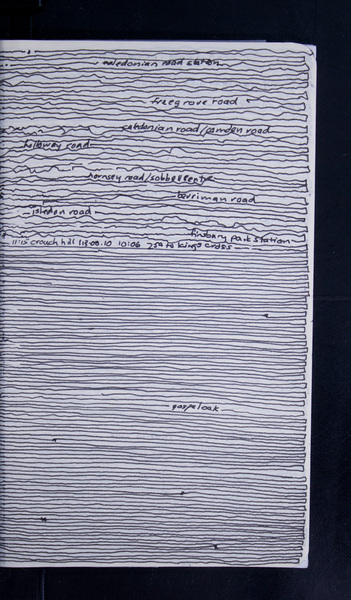 caledonian road station
freegrove road
caledonian road/camden road
holloway road
hornsey road/sobbell centre
berriman road
isledon road
finsbury park station
11:15 crouch hill 13.08.10 10:06 259 to kings cross
gospel oak